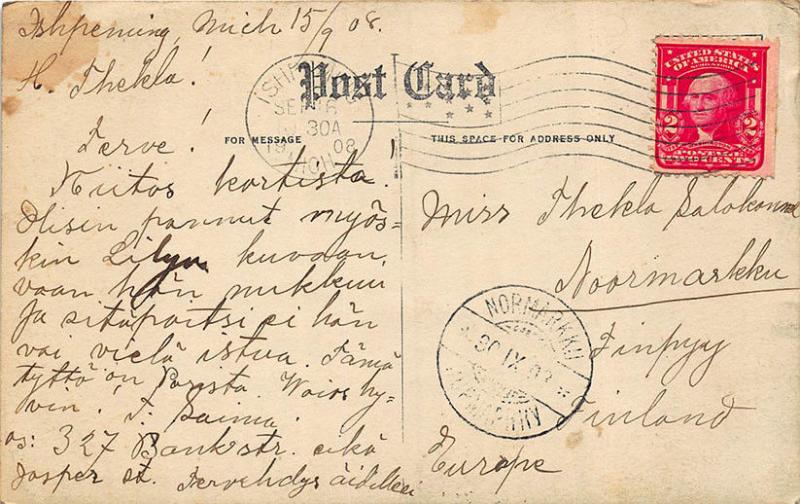 Ishpeming, Mich 15/9 08.
H. Thekla!
Terve!
Kiitos kortista!
Olisin pannut myös-
kin Lilyn kuvaan,
vaan hän nukkuu
ja sitäpaitsi ei hän
voi vielä istua. Tämä
tyttö on Porista. Voios hy-
vin! T. Saima.
os: 327 Bank str. eikä
Jasper st. Tervehdys äidillesi
Post Card
FOR MESSAGE
THIS SPACE FOR ADDRESS ONLY
SEP 16
30A
08
MICH.
UNITED STATES
OF AMERICA
2 2
POSTAGE
TWO CENTS
Miss Thekla Salokannel
Noormarkku
Finpyy
Finland
Europe
NORMARKKU
30.IX.08
NOORMARKKU